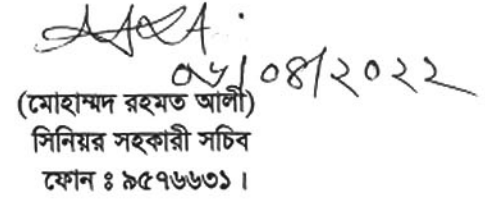 ০৬/০৪/২০২২
(মোহাম্মদ রহমত আলী)
সিনিয়র সহকারী সচিব
ফোন ঃ ৯৫৭৬৬৩১ ।